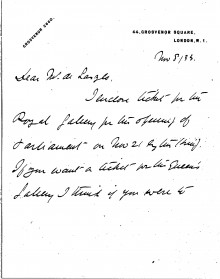 GROSVENOR 2440.
44, GROSVENOR SQUARE,
LONDON, W.1.
Nov 5/33.
Dear M. de
I enclose ticket for the
Royal Gallery for the opening of
Parliament on Nov 21 by the King.
If you want a ticket for the Queen's
Gallery I think if you were to